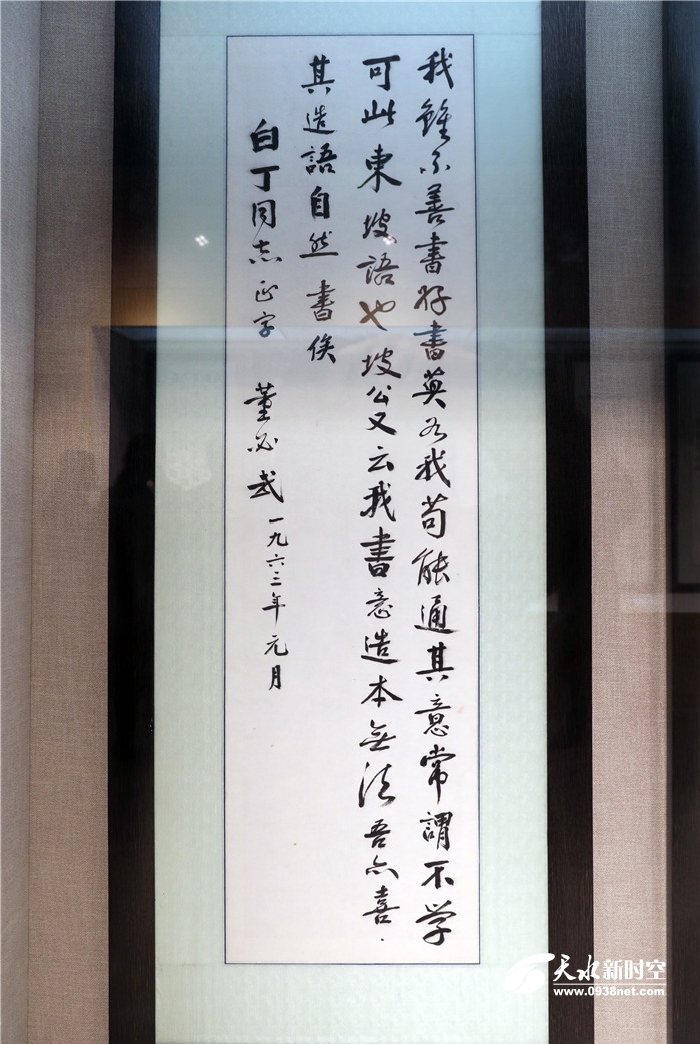 我雖不善書好書莫若我苟能通其意常謂不学
可此東坡語也坡公又云我書意造本無法吾亦喜
其造語自然 書俟
白丁同志正字 董必武 一九六三年元月
天水新时空
www.0938net.com